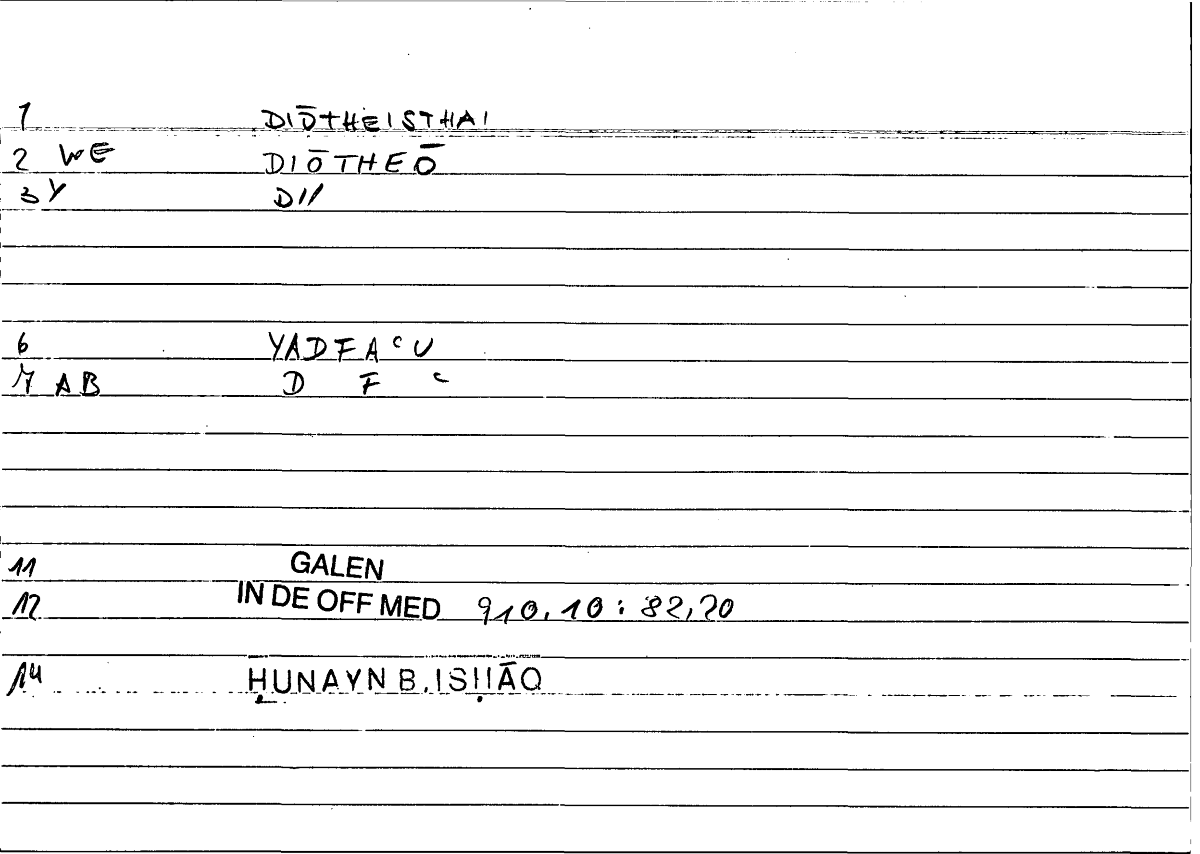 1 DIŌTHEISTHAI
2 WE DIŌTHEŌ
3 Y D//
6 YADFAᶜU
7 AB D F ᶜ
11 GALEN
12 IN DE OFF MED 910,10 : 82,20
14 ḤUNAYN B. ISḤĀQ